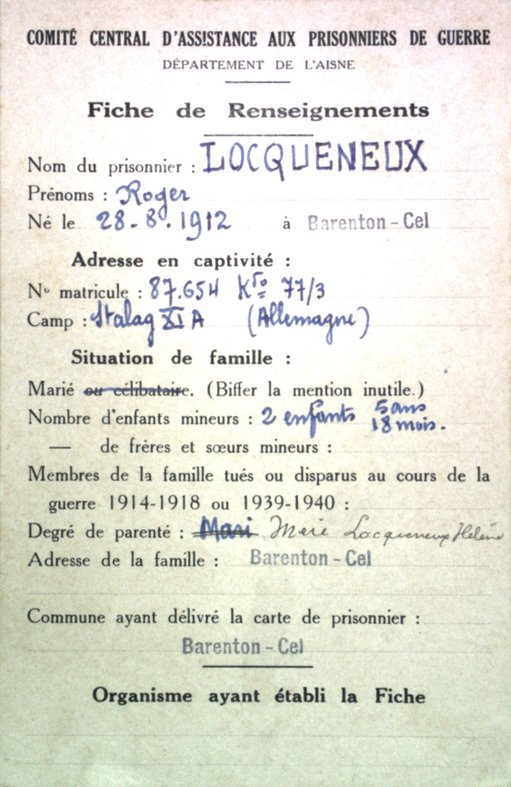 COMITÉ CENTRAL D'ASSISTANCE AUX PRISONNIERS DE GUERRE
DÉPARTEMENT DE L'AISNE
Fiche de Renseignements
Nom du prisonnier : LOCQUENEUX
Prénoms : Roger
Né le 28-8-1912 à Barenton-Cel
Adresse en captivité :
No matricule : 87.654 Kdo 77/3
Camp : Stalag XI A (Allemagne)
Situation de famille :
Marié ou célibataire. (Biffer la mention inutile.)
Nombre d'enfants mineurs : 2 enfants 5 ans
18 mois.
— de frères et sœurs mineurs :
Membres de la famille tués ou disparus au cours de la
guerre 1914-1918 ou 1939-1940 :
Degré de parenté : Mari Mère Locqueneux Hélène
Adresse de la famille : Barenton-Cel
Commune ayant délivré la carte de prisonnier :
Barenton-Cel
Organisme ayant établi la Fiche